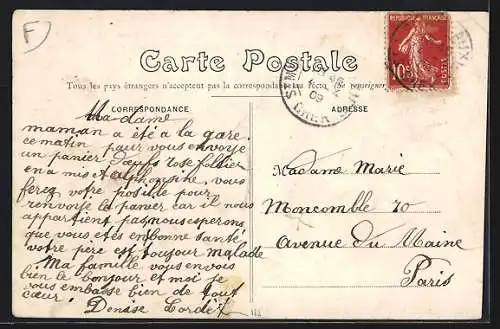 F
Carte Postale
Tous les pays étrangers n'acceptent pas la correspondance au recto (Se renseigner
RÉPUBLIQUE FRANÇAISE
10
POSTES
09
CHER
CORRESPONDANCE
ADRESSE
Madame
maman a été a la gare
ce matin pour vous envoyer
un panier d'œufs rose
en a mis et alphonsine. vous
ferez votre posible pour
renvoyer le panier car il nous
appartient pas, nous esperons
que vous êtes en bonne santé
votre père est toujour malade
Ma famille vous envois
bien le bonjour et moi je
vous embasse bien de tout
cœur. Denise
Madame Marie
Moncomble 70
Avenue du Maine
Paris